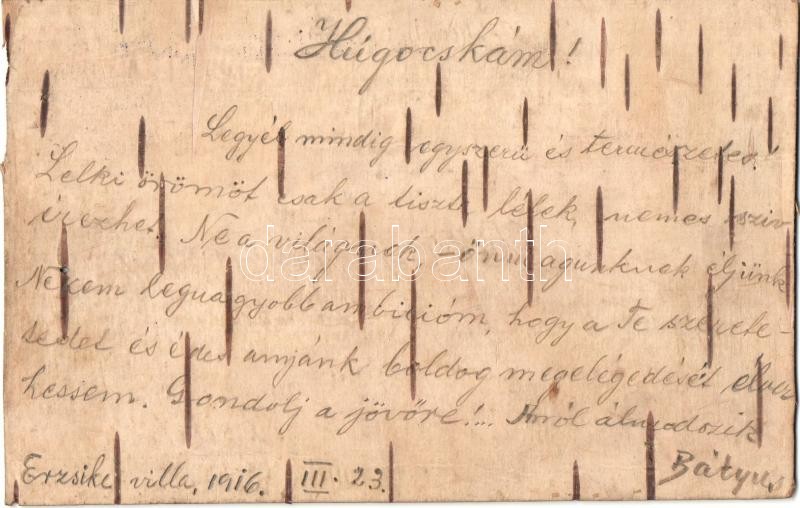 Húgocskám!
Legyél mindig egyszerű és természetes!
Lelki örömöt csak a tiszta lélek, nemes sziv
érezhet. Ne a világnak, - önmagunknak éljünk
Nekem legnagyobb ambicióm, hogy a Te szerete-
tedet és édes anyánk boldog megelégedését elnyer
hessem. Gondolj a jövőre!... Arról álmodozik
Bátyus
Erzsike villa, 1916. III. 23.
darabanth